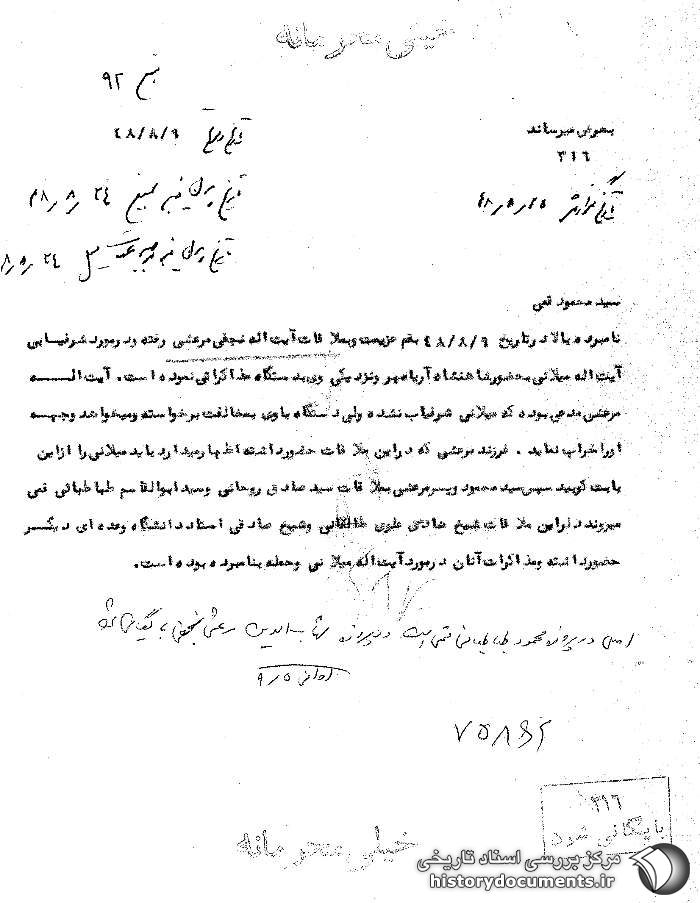 خیلی محرمانه
منبع ۹۲
بعرض میرساند
۳۱۶
تاریخ وقوع ۴۸/۸/۶
تاریخ گزارش
تاریخ رسیدن خبر بمنبع ۲۴
تاریخ رسیدن خبر ۲۴
سید محمود قمی
نامبرده بالا در تاریخ ۴۸/۸/۶ بقم عزیمت و بملاقات آیت اله نجفی مرعشی رفته و در مورد شرفیابی
آیت اله میلانی بحضور شاهنشاه آریامهر و نزدیکی وی بدستگاه مذاکراتی نموده است. آیت الـــــه
مرعشی مدعی بوده که میلانی شرفیاب نشده ولی دستگاه با وی بمخالفت برخواسته و میخواهد وجهه
او را خراب نماید. فرزند مرعشی که در این ملاقات حضور داشته اظهار میدارد باید میلانی را از این
بابت کوبید سپس سید محمود و پسر مرعشی بملاقات سید صادق روحانی و سید ابوالقاسم طباطبائی قمی
میروند در این ملاقات شیخ علوی طالقانی و شیخ صادقی استاد دانشگاه و عده ای دیگــر
حضور داشته و مذاکرات آنان در مورد آیت اله میلانی و حمله بنامبرده بوده است.
اصل در پرونده محمود طباطبائی قمی است در پرونده شهاب الدین مرعشی نجفی بایگانی شود
۹/۵
۷۵۸۶۲
۳۱۶
بایگانی شود
خیلی محرمانه
مرکز بررسی اسناد تاریخی
historydocuments.ir